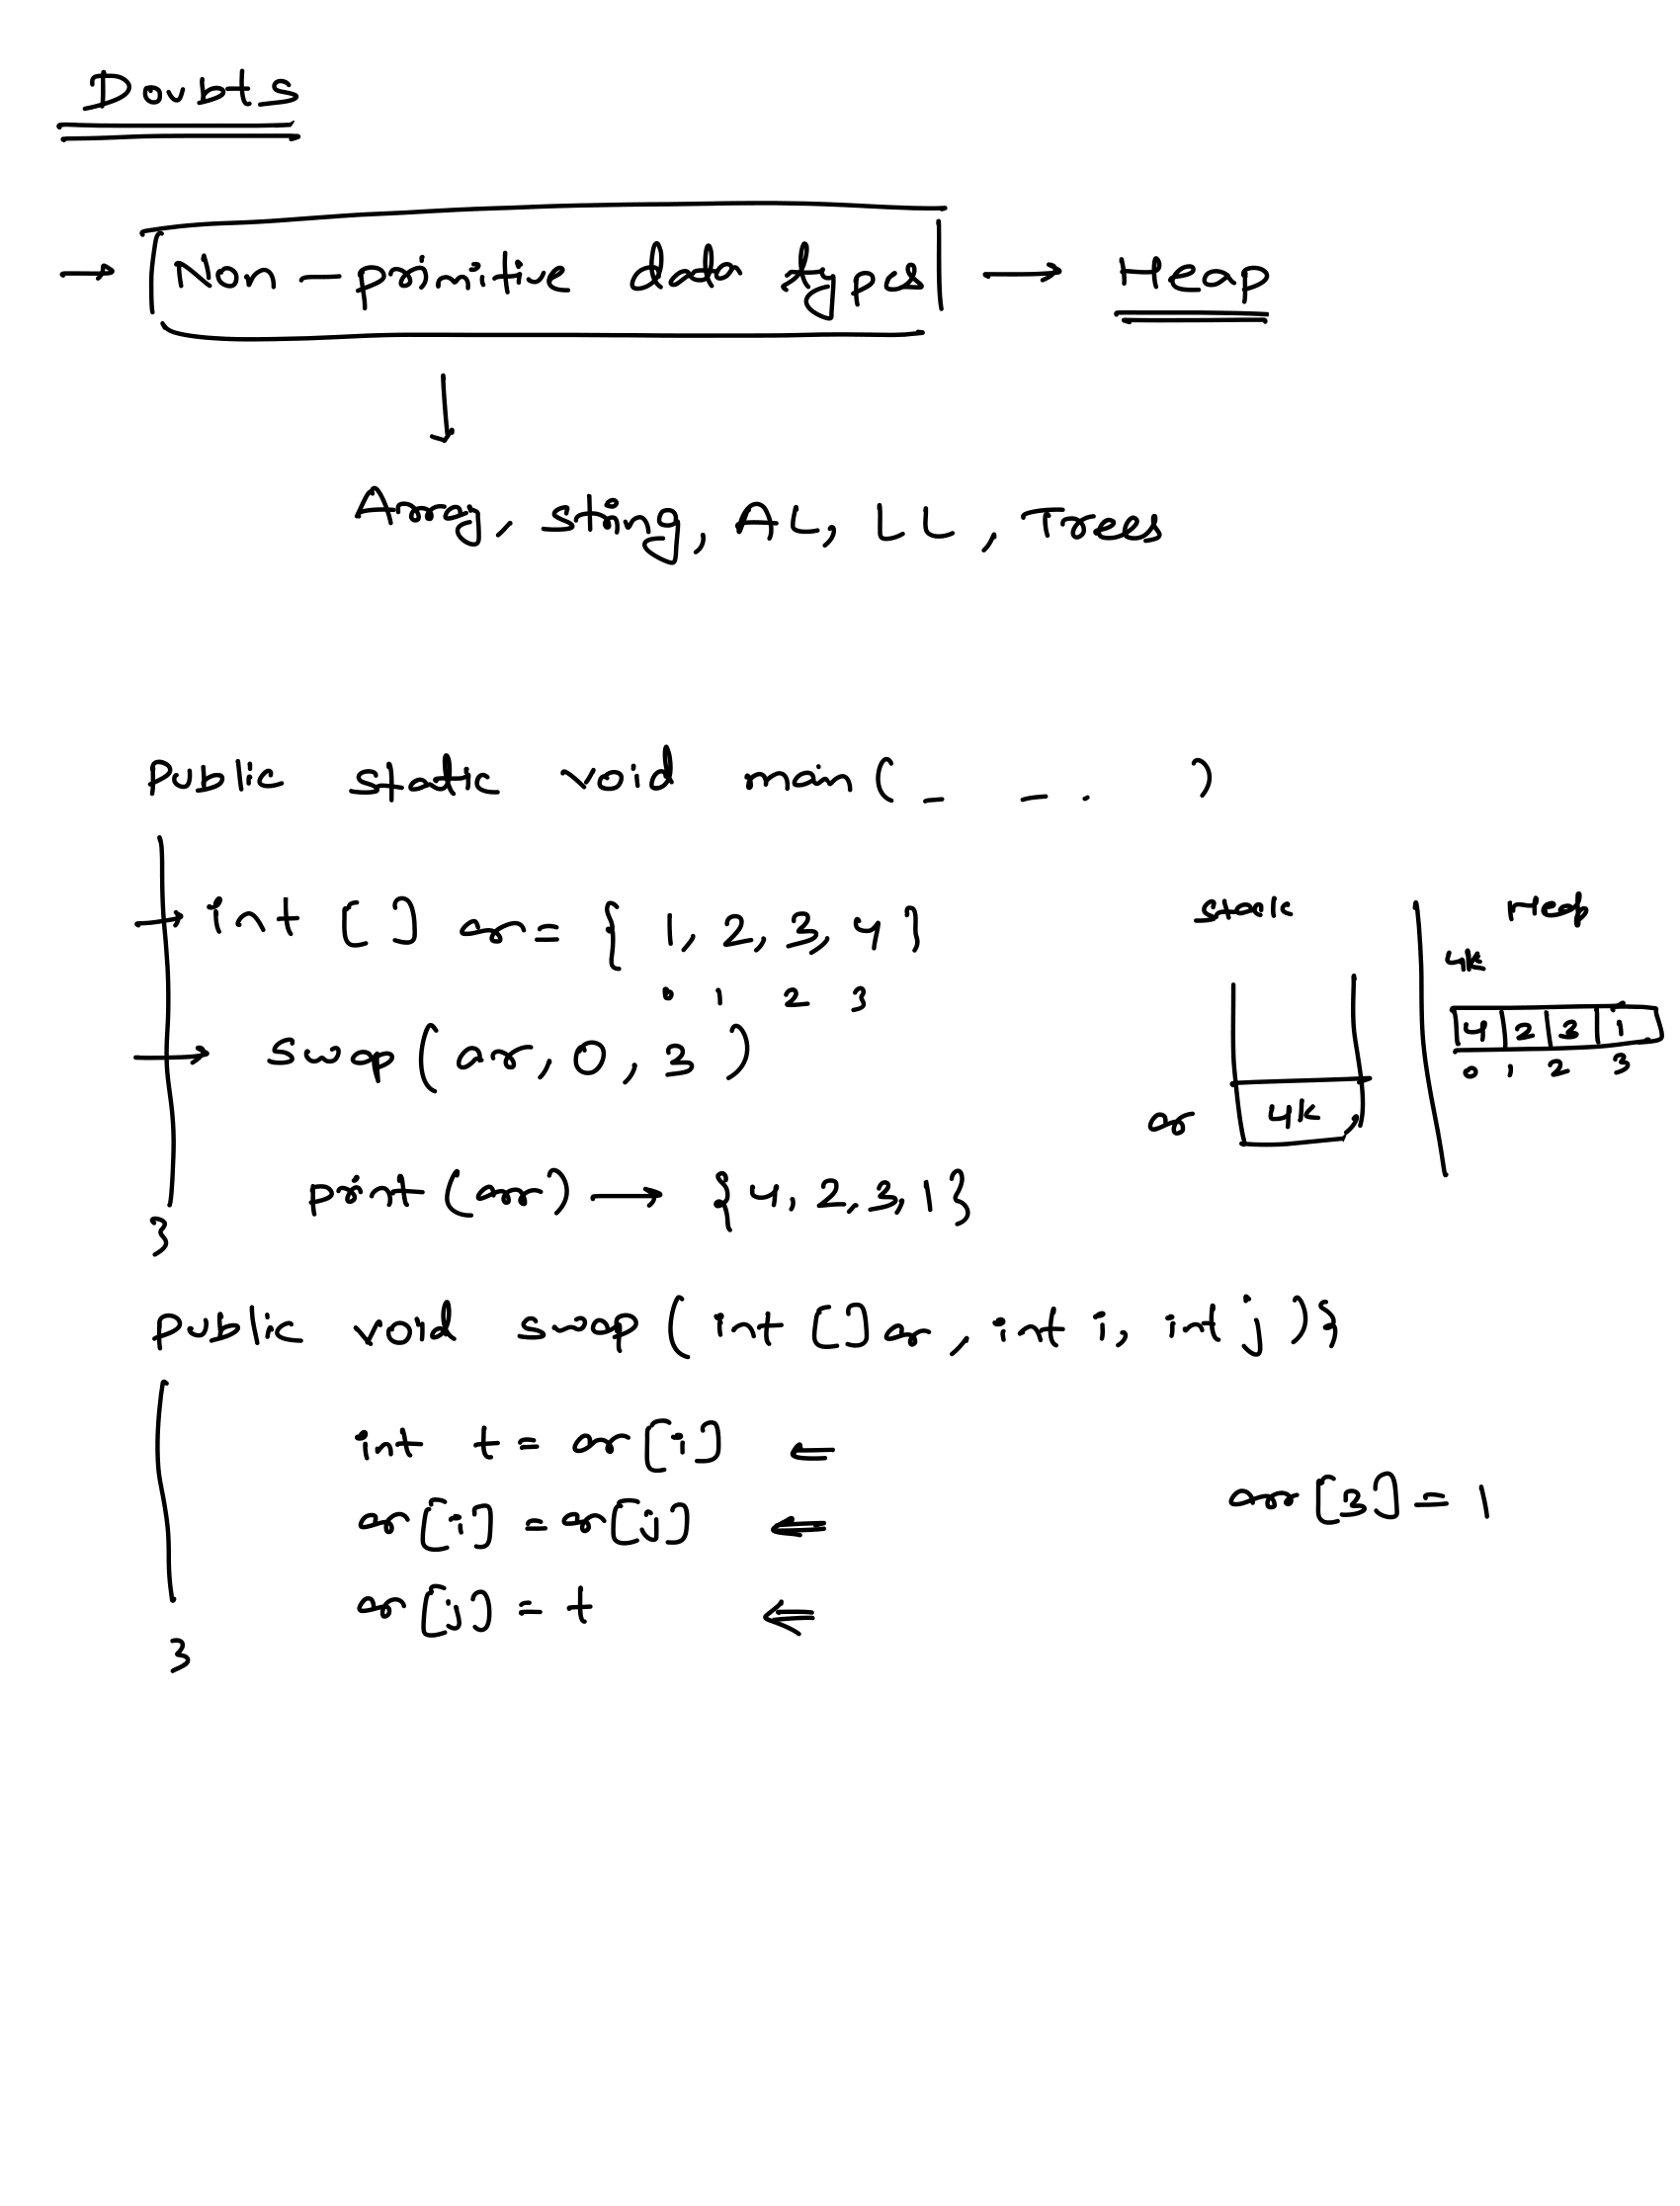 Doubts
→ Non - primitive data types → Heap
↓
Array, string, AL, LL, Trees
Public static void main ( _ _ . )
→ int [ ] ar = { 1, 2, 3, 4 }
0 1 2 3
→ swap ( ar, 0, 3 )
print (ar) → {4, 2, 3, 1}
}
stack Heap
4k
4 2 3 1
0 1 2 3
ar 4k
public void swap ( int [ ] ar, int i, int j ) {
int t = ar [i] ⇐
ar [i] = ar [j] ⇐
ar [j] = t ⇐
}
ar [3] = 1